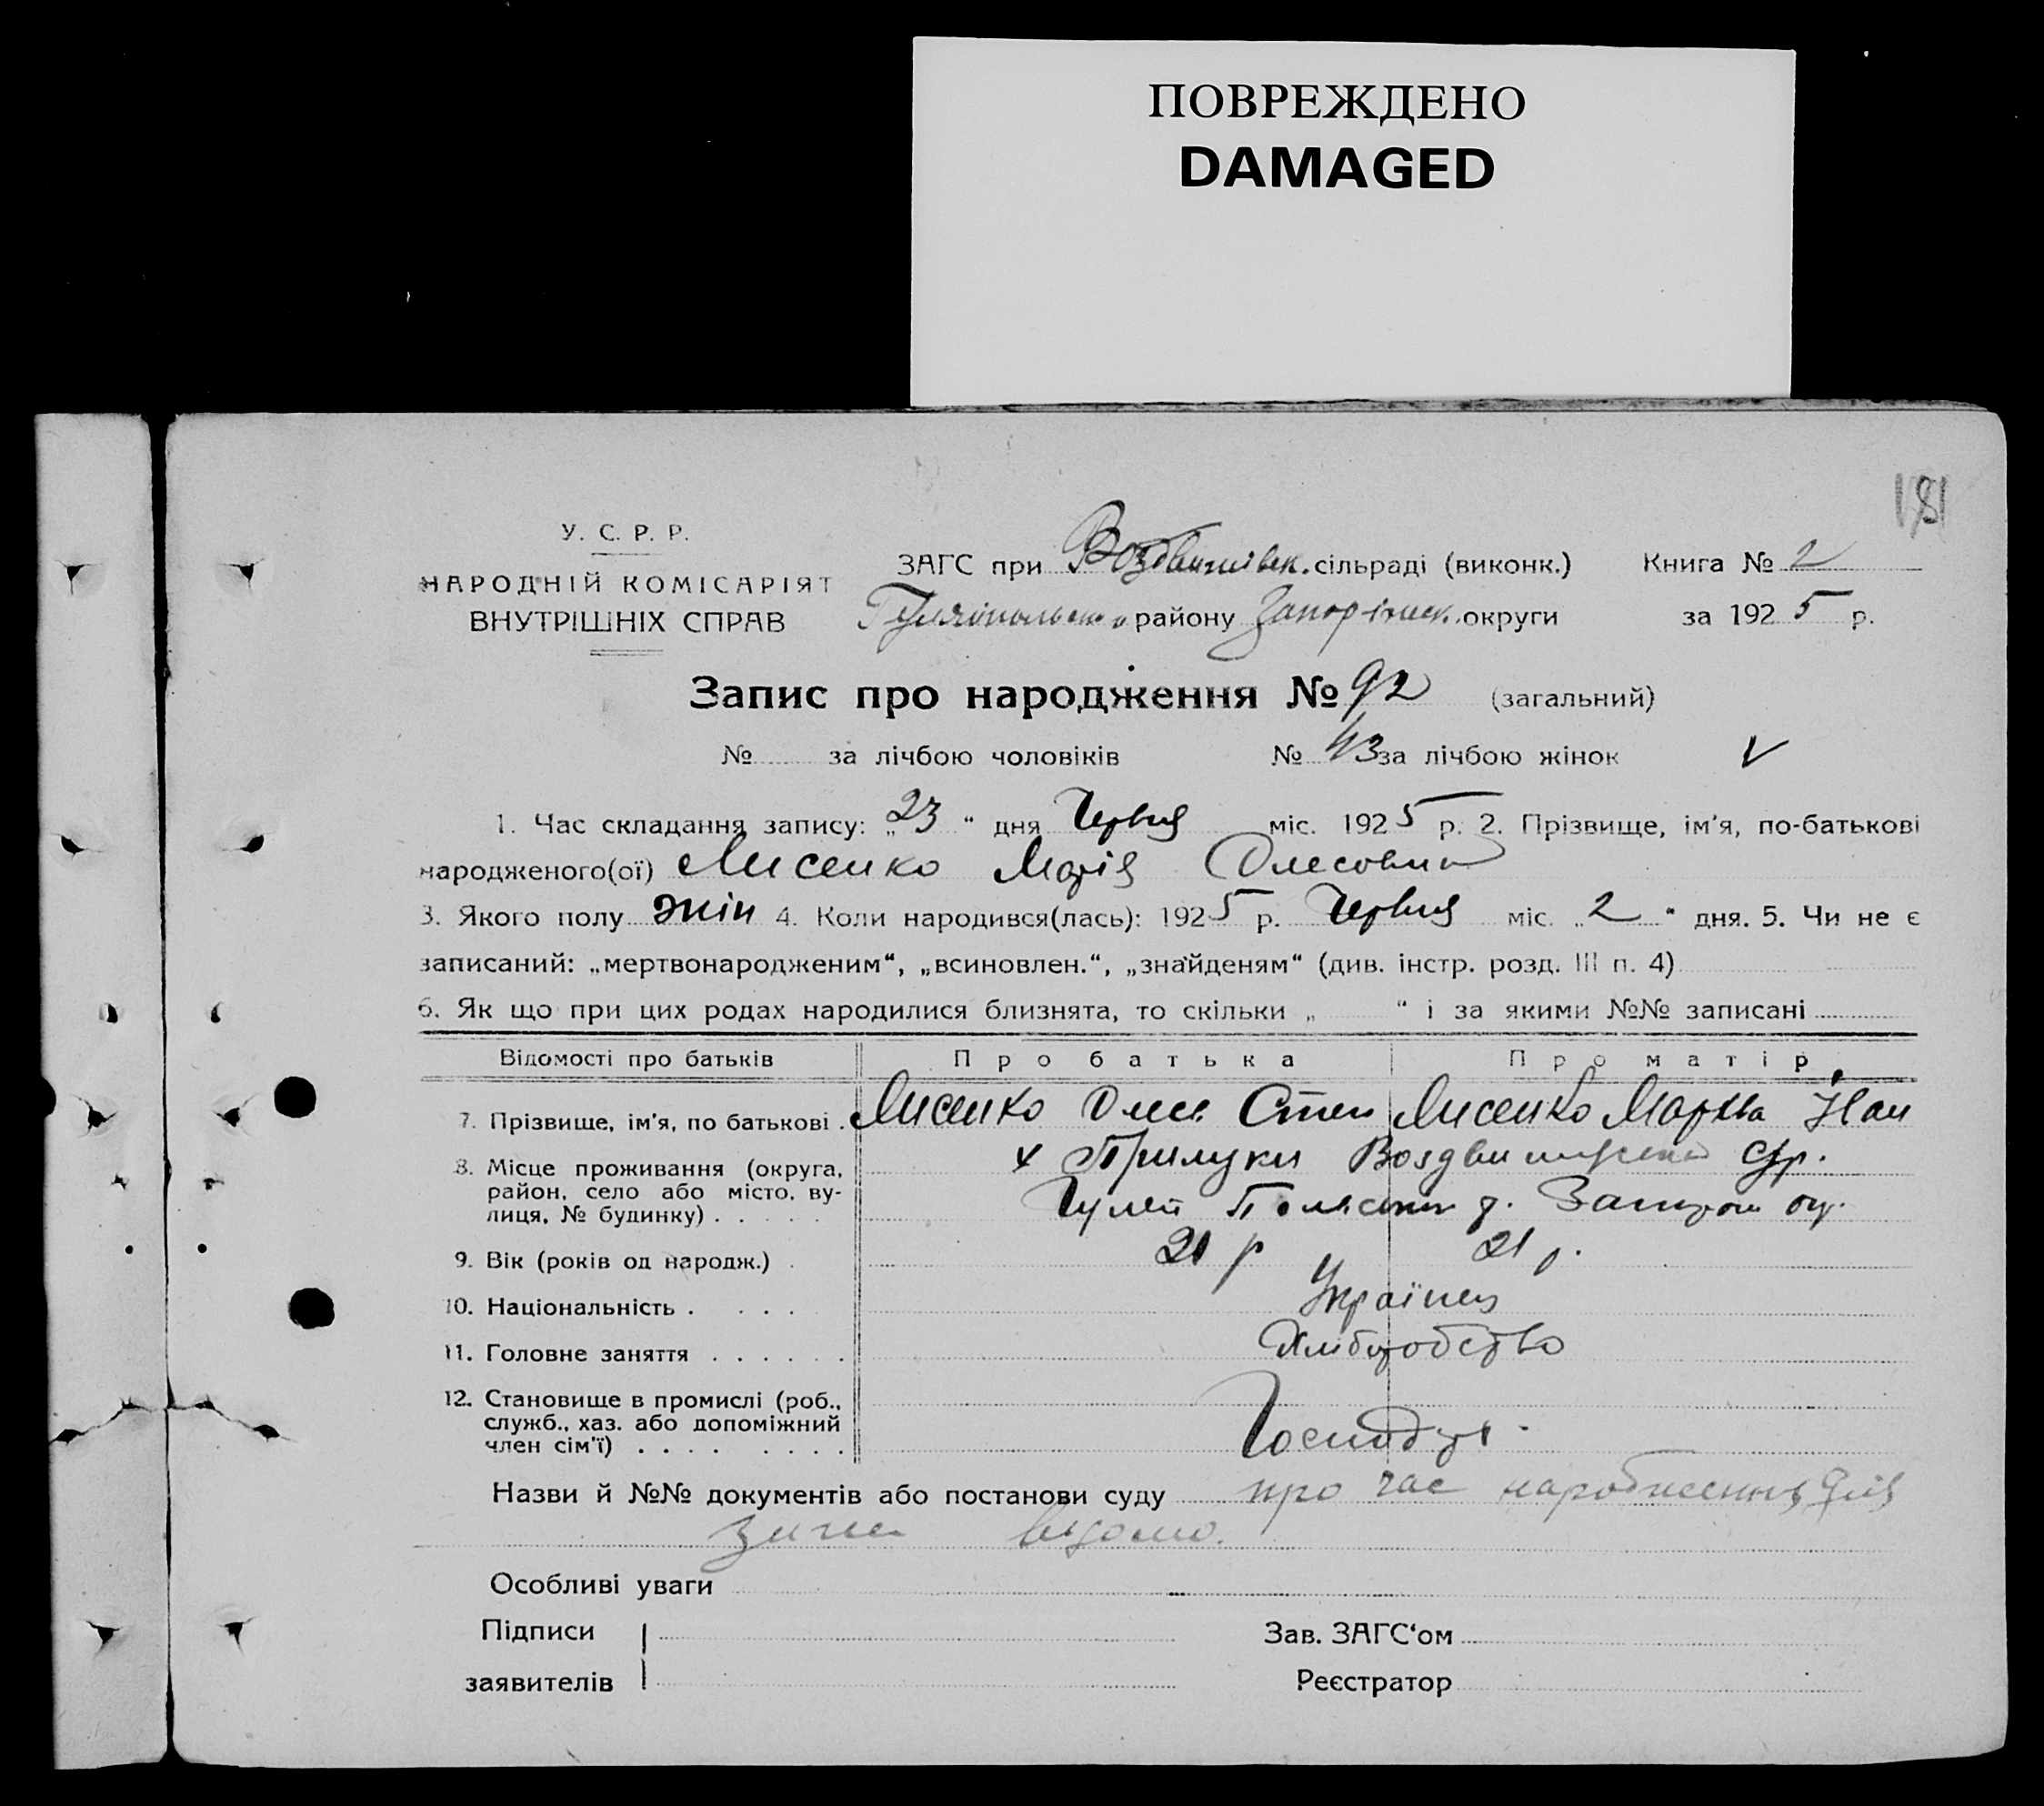 ПОВРЕЖДЕНО
DAMAGED
181
У. С. Р. Р.
НАРОДНІЙ КОМІСАРІЯТ
ВНУТРІШНІХ СПРАВ
ЗАГС при Воздвижівск. сільраді (виконк.) Книга № 2
району Запоріжск. округи за 1925 р.
Запис про народження № 92 (загальний)
№ за лічбою чоловіків № 43 за лічбою жінок V
1. Час складання запису: „23“ дня Червня міс. 1925 р. 2. Прізвище, ім'я, по-батькові
народженого(ої) Лисенко Марія Олесовна
3. Якого полу жін 4. Коли народився(лась): 1925 р. Червня міс. „2“ дня. 5. Чи не є
записаний: „мертвонародженим“, „всиновлен.“, „знайденям“ (див. інстр. розд. III п. 4)
6. Як що при цих родах народилися близнята, то скільки „ “ і за якими №№ записані
Відомості про батьків Про батька Про матір
7. Прізвище, ім'я, по батькові . Лисенко Олес Степ Лисенко Марва
8. Місце проживання (округа, х Прилуки
район, село або місто, ву-
лиця, № будинку) . . . . . Гуляй
9. Вік (років од народж.) . 21 р 21 р.
10. Національність . . . . Українец
11. Головне заняття . . . . . . Хліборобство
12. Становище в промислі (роб.,
служб., хаз. або допоміжний
член сім'ї) . . . . . . . .
Назви й №№ документів або постанови суду про час народження
відомо.
Особливі уваги
Підписи Зав. ЗАГС'ом
заявителів Реєстратор